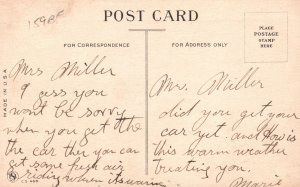 159BF
POST CARD
PLACE
POSTAGE
STAMP
HERE
FOR CORRESPONDENCE
FOR ADDRESS ONLY
MADE IN U.S.A
Mrs Miller
I gess you
wont be sorry
when you get the
the car then you can
get some fresh air
riding when its warm
Mr. Miller
did you get your
car yet and How is
this warm weather
treating you.
Marie